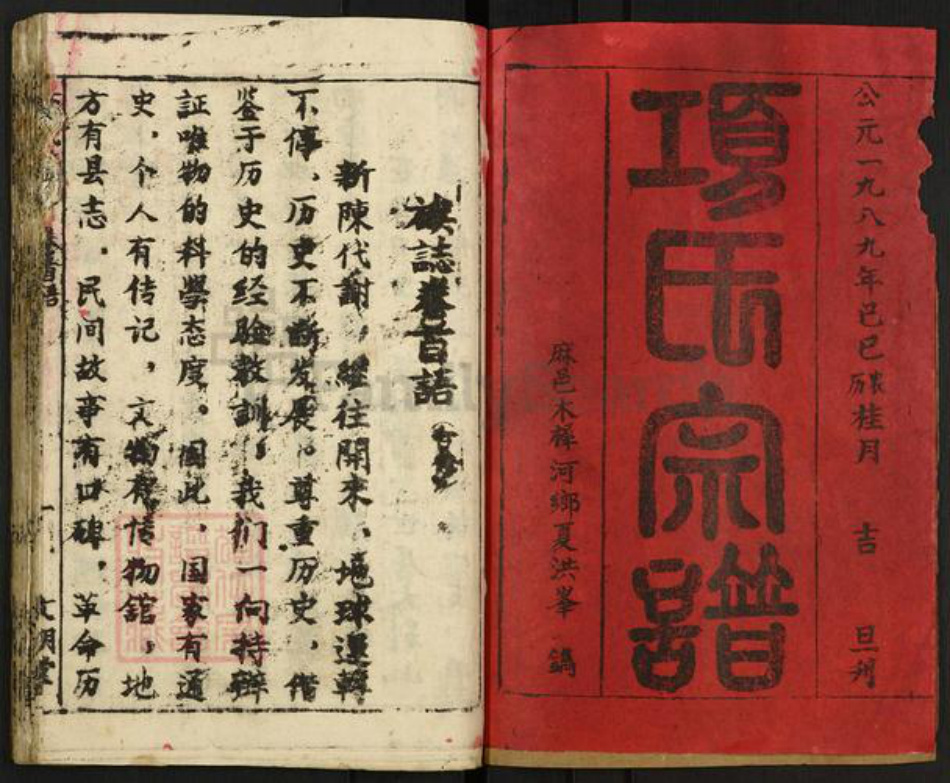 公元一九八九年己巳农历桂月 吉 旦刋
項氏宗譜
麻邑木樨河鄉夏洪峯 鐫
族誌卷首語
新陳代謝，继往開来、地球運轉
不停、历史不断发展。尊重历史，借
鉴于历史的经验教訓。我们一向持辯
証唯物的科學态度。因此，国家有通
史，个人有传记，文物有博物館，地
方有县志，民间故事有口碑，革命历
卷首語
一
文明堂